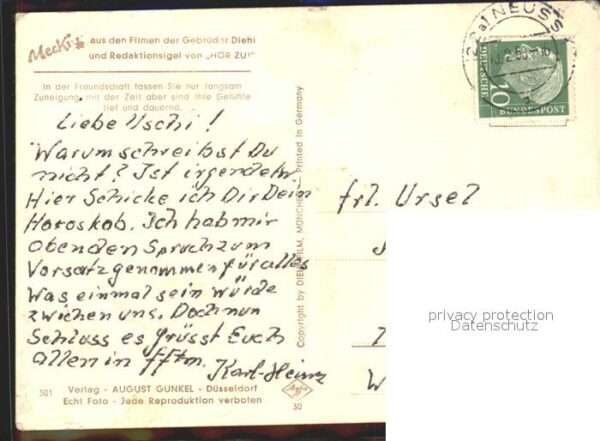 Mecki aus den Filmen der Gebrüder Diehl
und Redaktionsigel von „HÖR ZU!"
In der Freundschaft fassen Sie nur langsam
Zuneigung, mit der Zeit aber sind Ihre Gefühle
tief und dauernd.
Liebe Uschi!
Warum schreibst Du
nicht? Ist irgendetw.
Hier Schicke ich Dir Dein
Horoskob. Ich hab mir
oben den Spruch zum
Vorsatz genommen für alles
Was einmal sein würde
zwichen uns. Doch nun
Schluss es grüsst Euch
allen in fftm.
Karl-Heinz
501 Verlag - AUGUST GUNKEL - Düsseldorf
Echt Foto - Jede Reproduktion verboten
Copyright by DIEHLFILM, MÜNCHEN - Printed in Germany
Agfa
50
NEUSS
10
DEUTSCHE
BUNDESPOST
frl. Ursel
W
privacy protection
Datenschutz